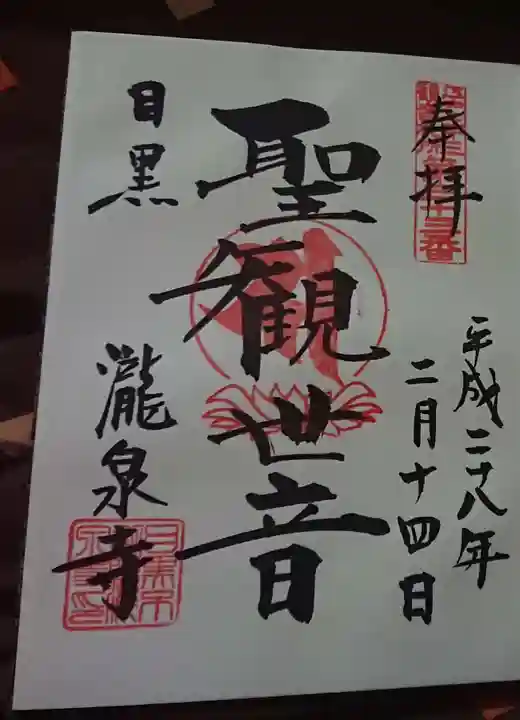 奉拝
平成二十八年
二月十四日
聖観世音
目黒
瀧泉寺